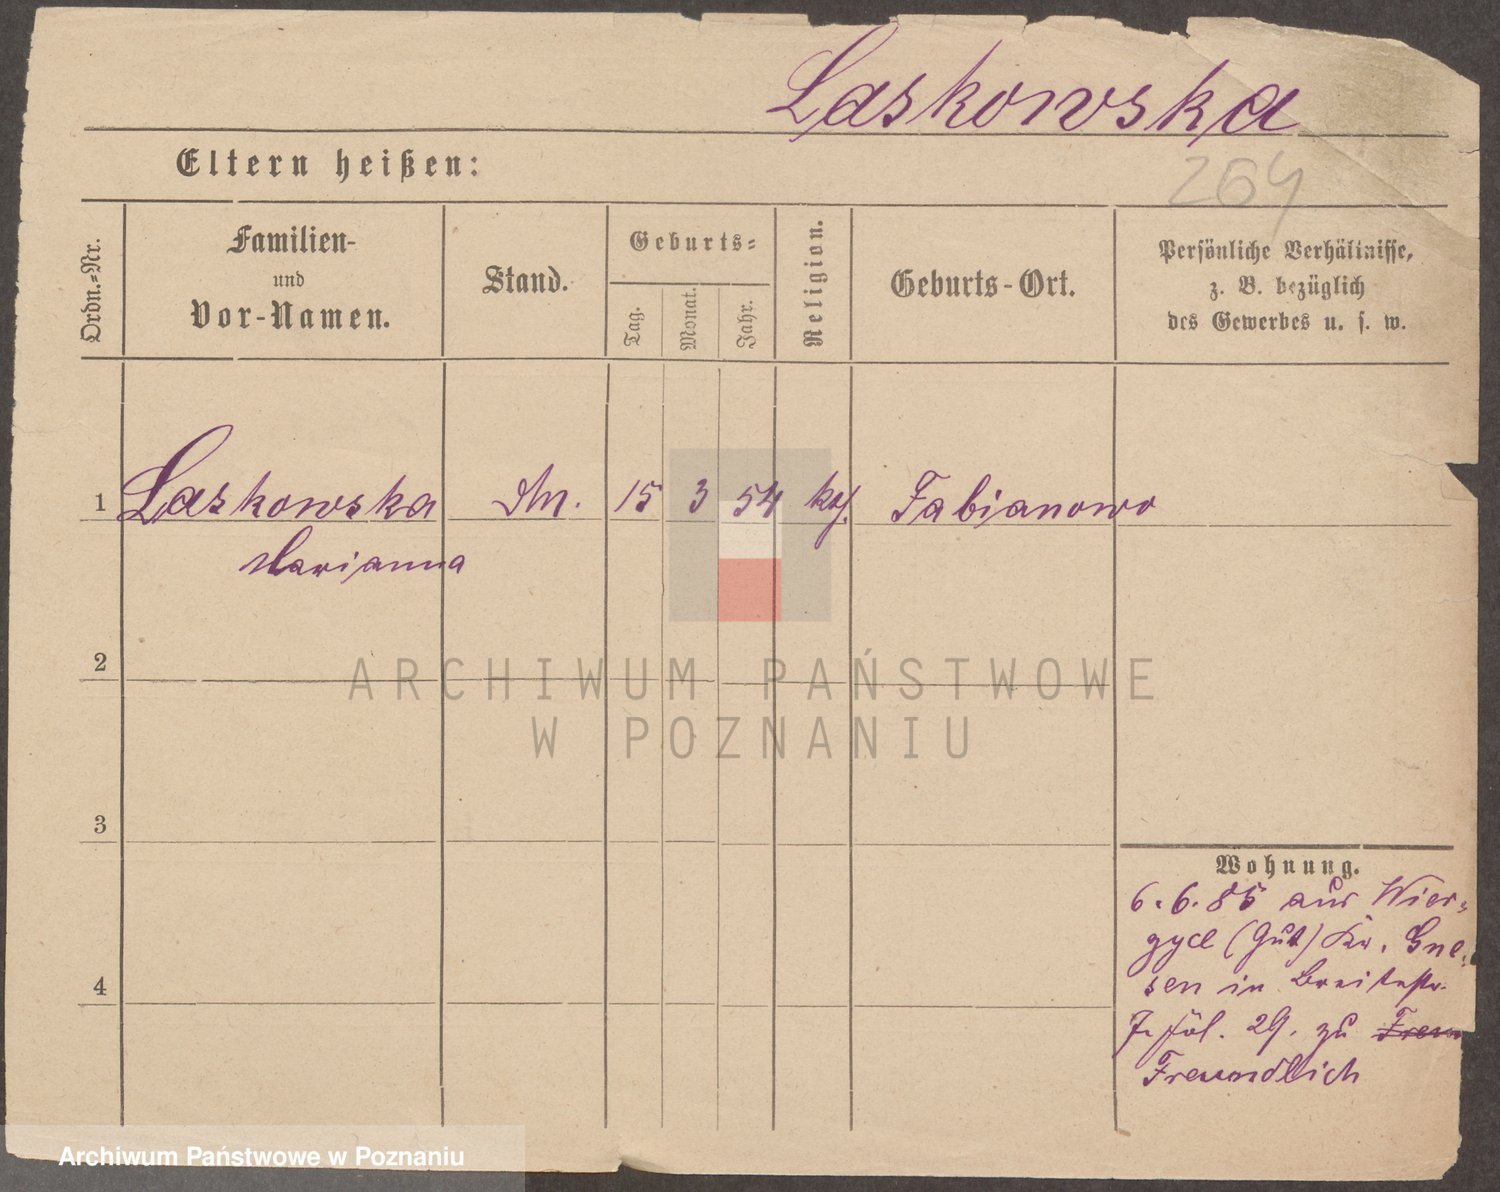 Laskowska
264
Eltern heißen:
Ordn.-Nr.
Familien-
und
Vor-Namen.
Stand.
Geburts-
Tag.
Monat.
Jahr.
Religion.
Geburts-Ort.
Persönliche Verhältnisse,
z. B. bezüglich
des Gewerbes u. s. w.
1 Laskowska 15 3 54 kath. Fabianowo
Marianna
2
3
4
Wohnung.
6. 6. 85 aus Wier-
zyce (Gut) Kr. Gne-
sen in Breitestr.
29. zu
Freundlich
ARCHIWUM PAŃSTWOWE
W POZNANIU
Archiwum Państwowe w Poznaniu